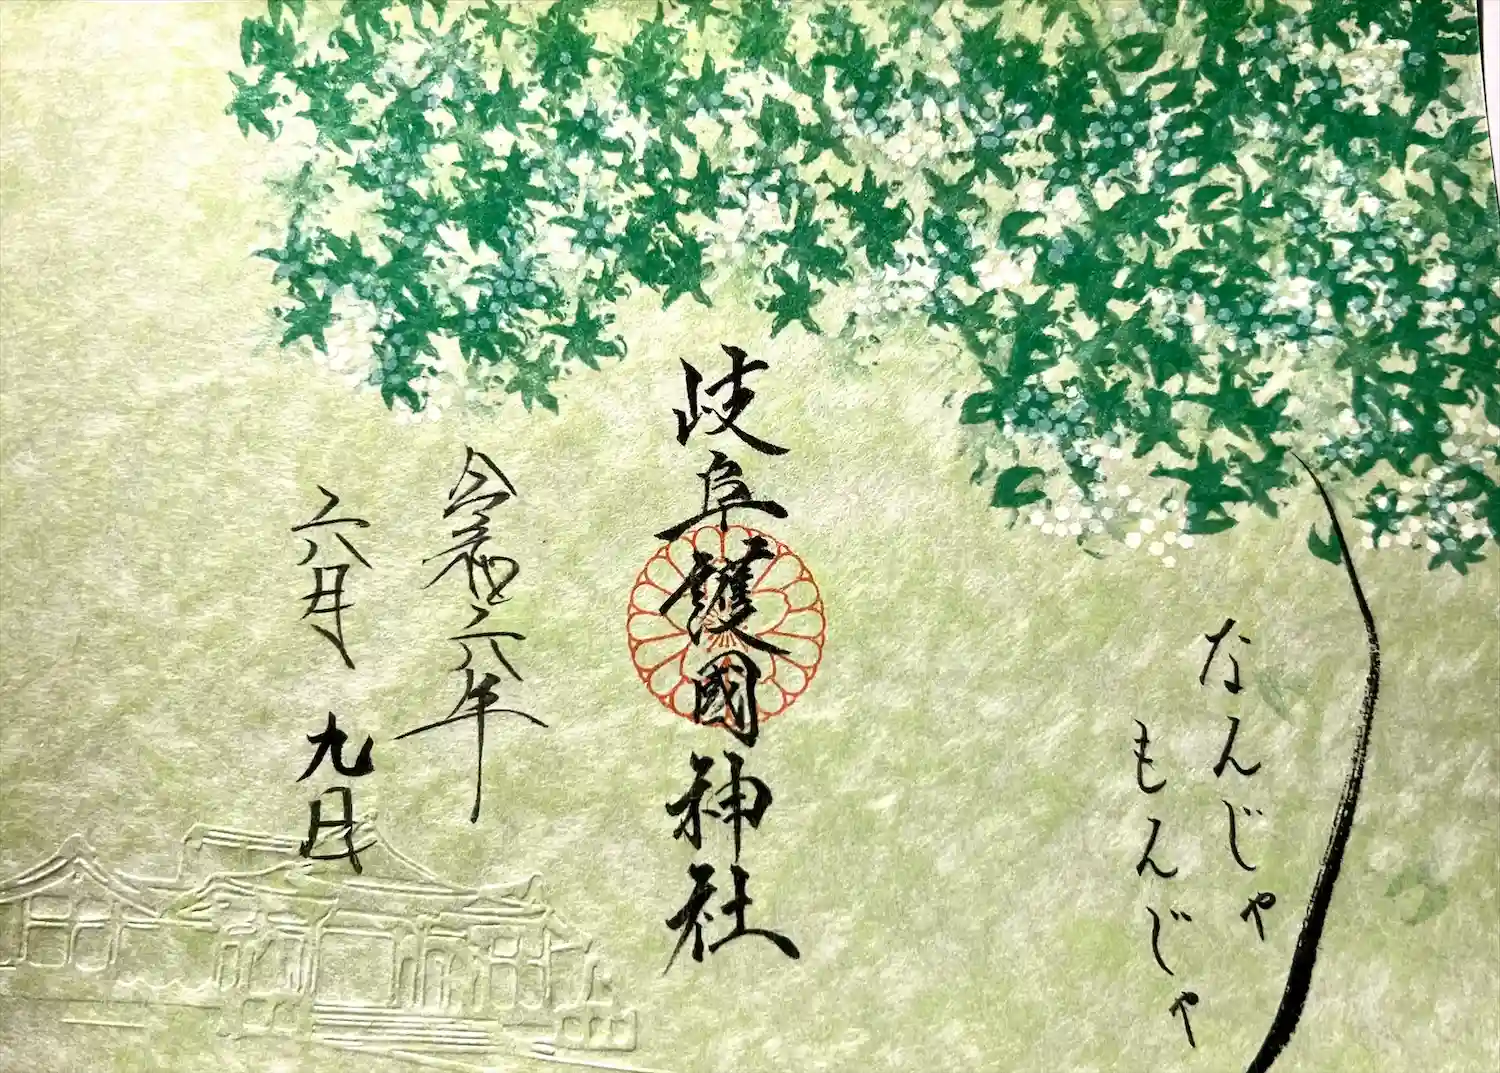 なんじゃ
もんじゃ
岐阜護國神社
令和六年
六月九日